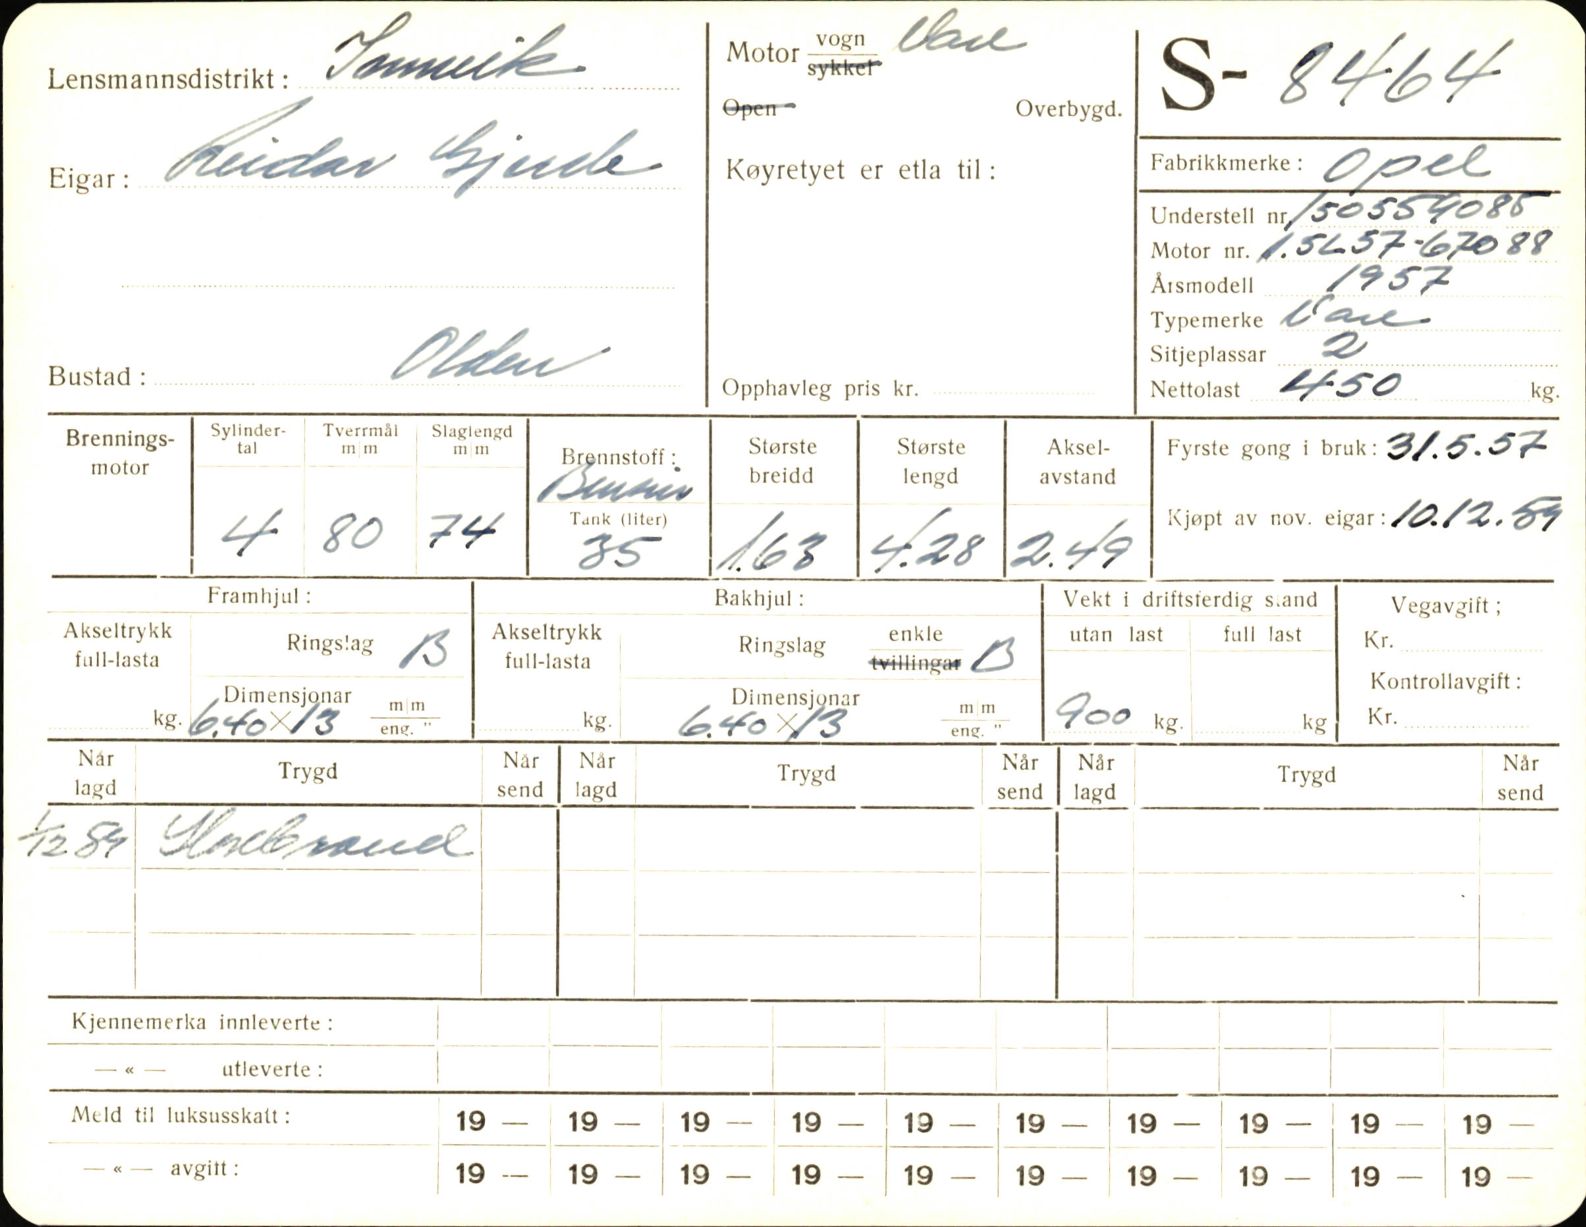 Lensmannsdistrikt: Innvik
Eigar: Reidar Gjerde
Bustad: Olden
Motor vogn Vare
sykkel
Open Overbygd.
Køyretyet er etla til:
Opphavleg pris kr.
S- 8464
Fabrikkmerke: Opel
Understell nr. 150559085
Motor nr. 1.5L57-67088
Årsmodell 1957
Typemerke Vare
Sitjeplassar 2
Nettolast 450 kg.
Brennings-
motor
Sylinder-
tal
4
Tverrmål
m|m
80
Slaglengd
m|m
74
Brennstoff:
Bensin
Tank (liter)
35
Største
breidd
1.63
Største
lengd
4.28
Aksel-
avstand
2.49
Fyrste gong i bruk: 31.5.57
Kjøpt av nov. eigar: 10.12.59
Framhjul:
Akseltrykk
full-lasta
kg.
Ringslag B
Dimensjonar
6.40 X 13 m|m
eng. "
Bakhjul:
Akseltrykk
full-lasta
kg.
Ringslag enkle
tvillingar B
Dimensjonar
6.40 X 13 m|m
eng. "
Vekt i driftsferdig stand
utan last full last
900 kg. kg
Vegavgift;
Kr.
Kontrollavgift:
Kr.
Når
lagd Trygd Når
send Når
lagd Trygd Når
send Når
lagd Trygd Når
send
1/12 59 Storebrand
Kjennemerka innleverte:
— « — utleverte:
Meld til luksusskatt: 19 — 19 — 19 — 19 — 19 — 19 — 19 — 19 — 19 — 19 —
— « — avgitt: 19 — 19 — 19 — 19 — 19 — 19 — 19 — 19 — 19 — 19 —